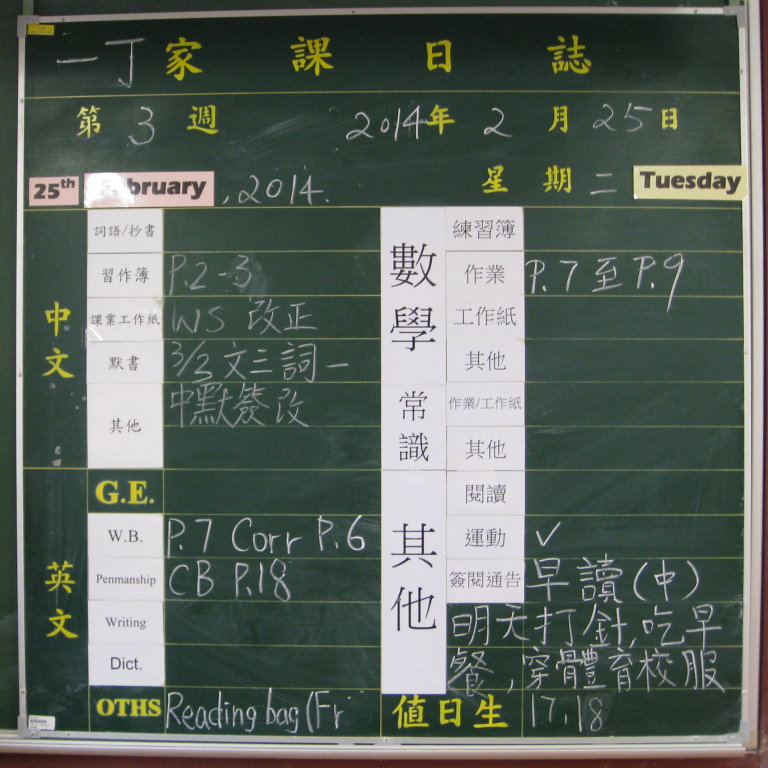 一丁家課日誌
第3週 2014年2月25日
25th February, 2014. 星期二 Tuesday
中文
詞語/抄書
習作簿 P.2-3
課業工作紙 WS 改正
默書 3/2 文三詞一
其他 中默簽改
英文
G.E.
W.B. P.7 Corr P.6
Penmanship CB P.18
Writing
Dict.
OTHS Reading bag (Fr
數學
練習簿
作業 P.7至P.9
工作紙
其他
常識
作業/工作紙
其他
其他
閱讀
運動 ✓
簽閱通告 早讀(中)
明天打針,吃早
餐,穿體育校服
值日生 17,18